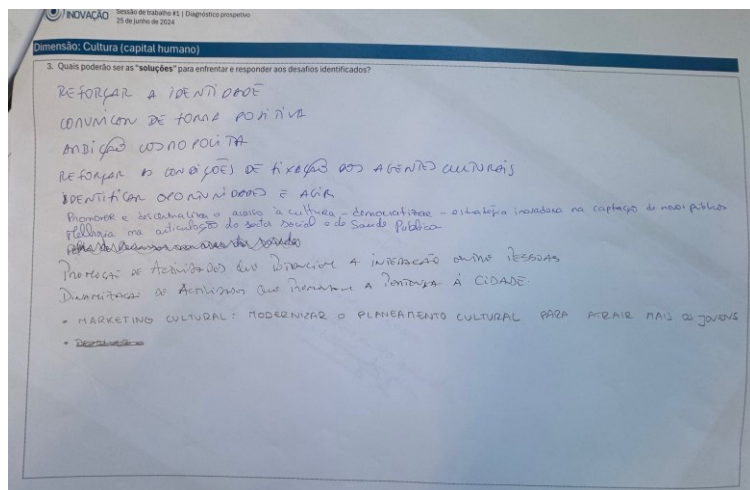 INOVAÇÃO
Sessão de trabalho #1 | Diagnóstico prospetivo
25 de junho de 2024
Dimensão: Cultura (capital humano)
3. Quais poderão ser as "soluções" para enfrentar e responder aos desafios identificados?
REFORÇAR A IDENTIDADE
COMUNICAR DE FORMA POSITIVA
AMBIÇÃO COSMOPOLITA
REFORÇAR AS CONDIÇÕES DE FIXAÇÃO DOS AGENTES CULTURAIS
IDENTIFICAR OPORTUNIDADES E AGIR
Promover e descentralizar o acesso à cultura - democratizar - estratégia inovadora na captação de novos públicos
na articulação do setor social e da Saúde Pública
Promoção de Actividades que a interação entre Pessoas
Dinamização de Actividades que a Pertença à CIDADE.
• MARKETING CULTURAL: MODERNIZAR O PLANEAMENTO CULTURAL PARA ATRAIR MAIS OS JOVENS